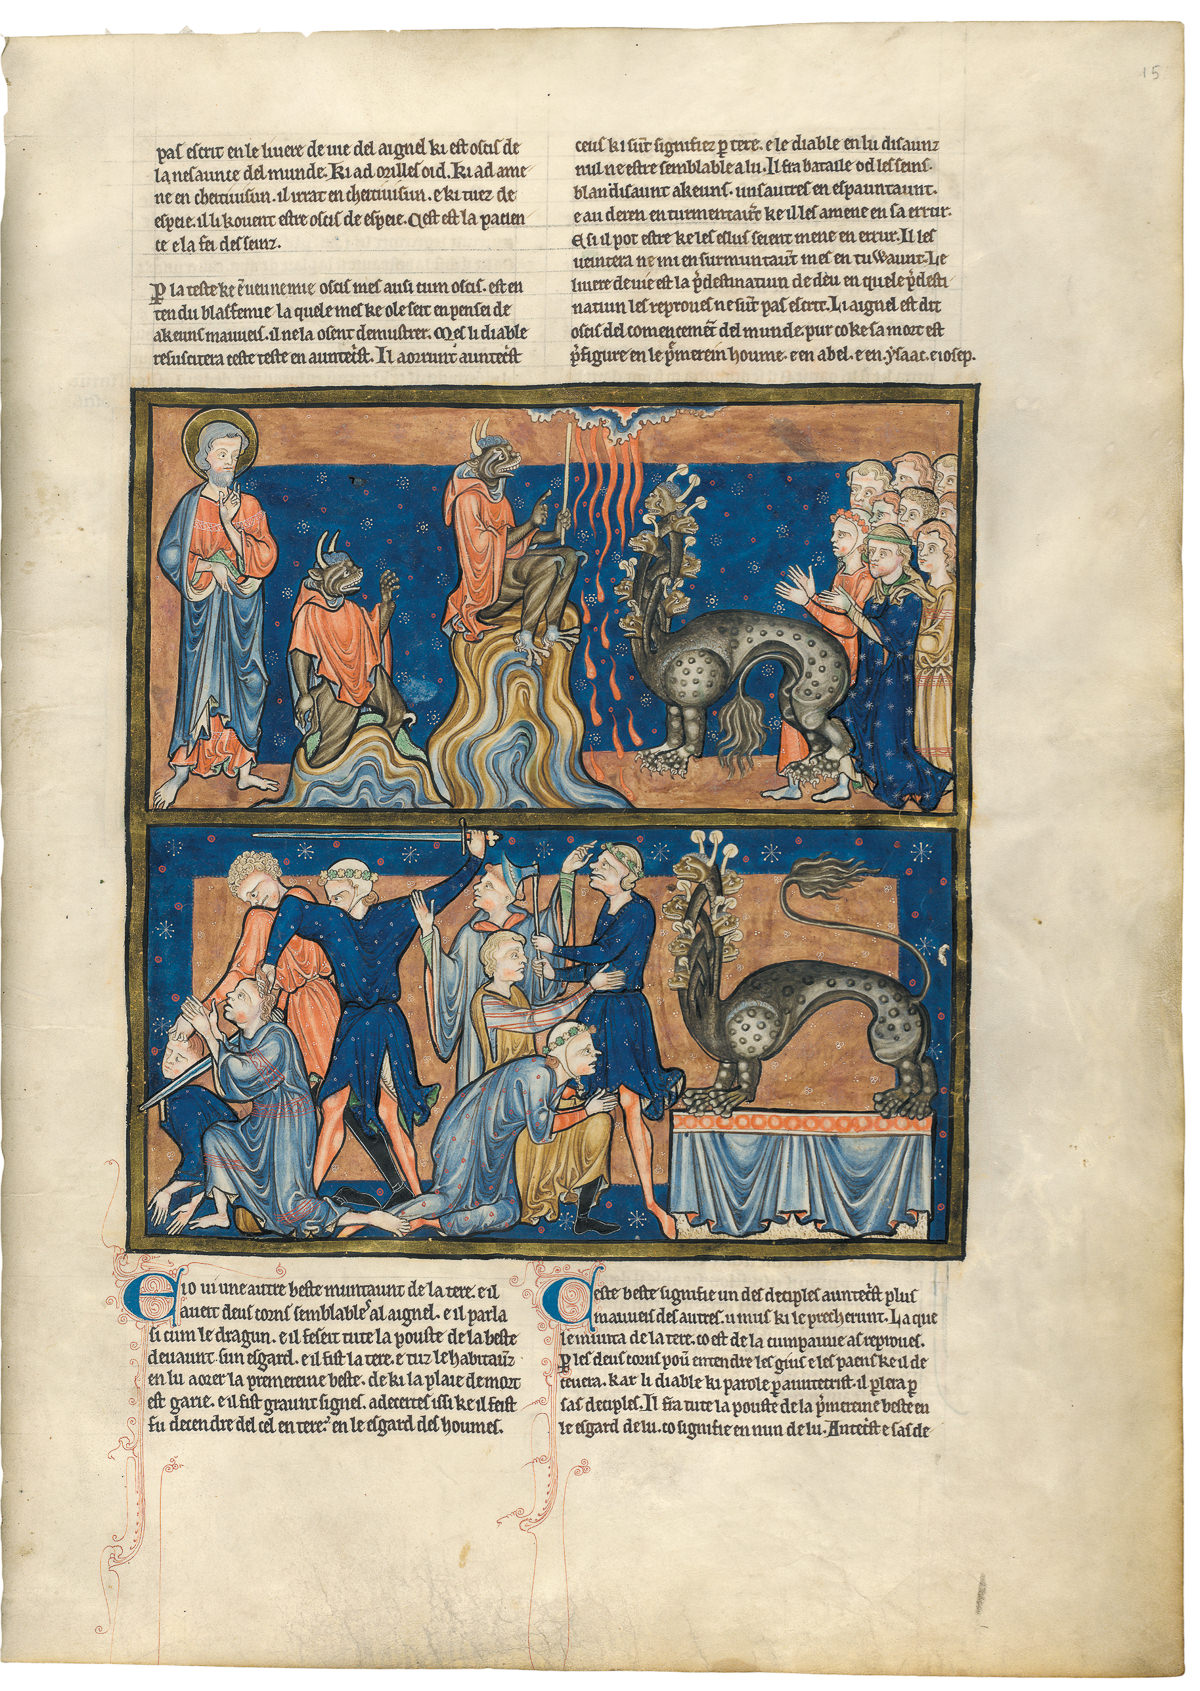 15
pas escrit en le livere de vie del aignel ki est oscis de
la nesaunce del munde. Ki ad orilles oid. Ki ad ame
ne en cheitivisun. il irrat en cheitivisun. e ki tuez de
espeie. il li kovent estre oscis de espeie. Cest est la pacien
ce e la fei des seinz.
P la teste ke est venue mie oscis mes ausi cum oscis. est en
tendu blasfemie la quele mes ke ole seit en pensei de
akeuns mauveis. il ne la osent demustrer. Mes li diable
resuscitera ceste teste en auntecrist. Il aorrunt auntecrist
ceus ki sunt signifiez p tere. e le diable en lu disaunz
nul ne estre semblable a lu. Il fra bataile od les seins.
blandisaunt akeuns. uns autres en espauntaunt.
e au deren en turmentaunt ke il les amene en sa errur.
E si il pot estre ke les eslus seient mene en errur. Il les
veintera ne mi en surmuntaunt mes en tuwaunt. Le
livere de vie est la pdestinatiun de deu en quele pdesti
natiun les reproves ne sunt pas escrit. Li aignel est dit
oscis del comencement del munde. pur co ke sa mort est
pfigure en le pmerein houme. e en abel. e en ysaac. e iosep.
E io vi une autre beste muntaunt de la tere. e il
aveit deus corns semblable al aignel. e il parla
si cum le dragun. e il feseit tute la pouste de la beste
devaunt sun esgard. e il fist la tere. e tuz le habitaunz
en lu aorer la premereine beste. de ki la plaie de mort
est garie. e il fist graunt signes. adecertes issi ke il feist
fu decendre del cel en tere. en le esgard des houmes.
Ceste beste signifie un des deciples auntecrist plus
mauveis des autres. u mus ki le precherunt. La que
le munta de la tere. co est de la cumpainie as reproves.
P les deus corns poum entendre les gius e les paens ke il de
cevera. kar li diable ki parole p auntecrist. il plera p
sas deciples. Il fra tute la pouste de la pmereine beste en
le esgard de lu. co signifie en nun de lu. Antecrist e sas de